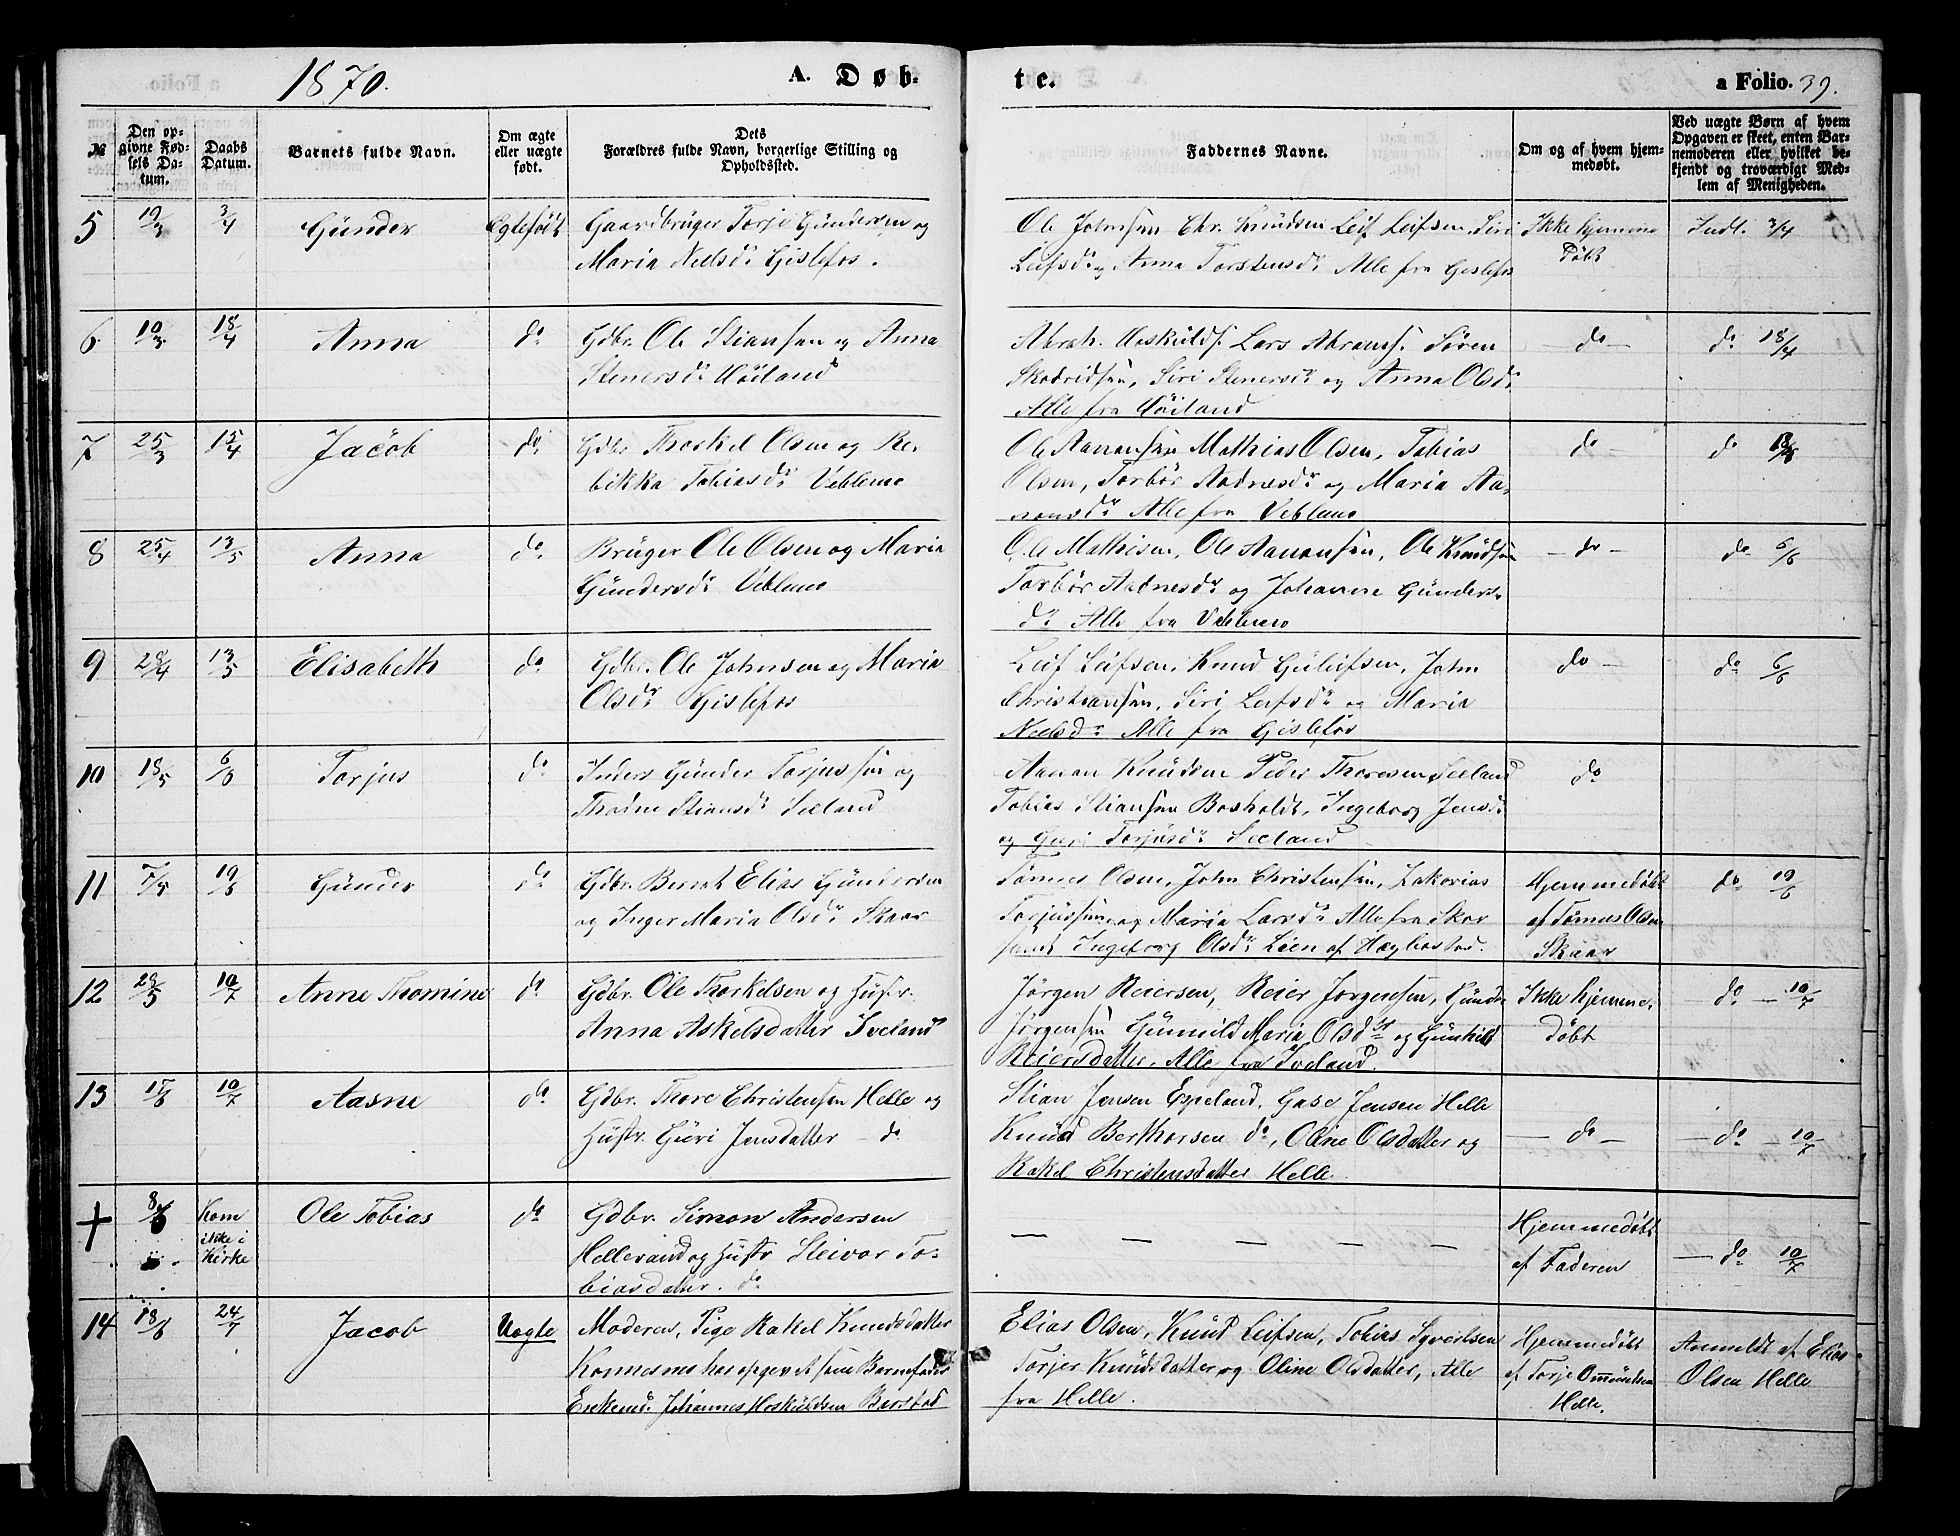 1870.
A. Døb-
te.
a Folio. 39.
№
Den op-
givne Fød-
sels Da-
tum.
Daabs
Datum.
Barnets fulde Navn.
Om ægte
eller uægte
født.
Dets
Forældres fulde Navn, borgerlige Stilling og
Opholdssted.
Faddernes Navne.
Om og af hvem hjem-
medøbt.
Ved uægte Børn af hvem
Opgaven er skeet, enten Bar-
nemoderen eller hvilket be-
kjendt og troværdigt Med-
lem af Menigheden.
5
19/3
3/4
Günder
Egtefødt
Gaardbrüger Torje Gündersen og
Maria Neelsdr Gislefos.
Ole Johnsen Chr. Knüdsen Leif Leifsen, Siri
Leifsdr og Anna Torstensdr Alle fra Gislefos
Ikke hjemme
Døbt
Indt. 3/4
6
10/3
18/4
Anna
do
Gdbr. Ole Stiansen og Anna
Stenersdr Høiland
Abrah. Aaskülds. Lars Abrams. Søren
Skodridsen, Siri Stenersdr og Anna Olsdr
Alle fra Høiland
do
do 18/4
7
25/3
15/4
Jacob
do
Gdbr. Thorkel Olsen og Re-
bikka Tobiasdr Veblemo
Ole Aanonsen Mathias Olsen, Tobias
Olsen, Torbør Aadnesdr og Maria Aa-
nonsdr Alle fra Veblemo
do
do
8
25/4
13/5
Anna
do
Brüger Ole Olsen og Maria
Gündersdr Veblemo
Ole Mathisen, Ole Aanonsen, Ole Knudsen
Torbør Aadnesdr og Johanne Günders-
dr Alle fra Veblemo
do
do 6/6
9
28/4
13/5
Elisabeth
do
Gdbr. Ole Johnsen og Maria
Olsdr Gislefos
Leif Leifsen, Knud Güleifsen, John
Christiansen, Siri Leifsdr og Maria
Neelsdr Alle fra Gislefos
do
do 6/6
10
18/5
6/6
Torjus
do
Inders Günder Torjussen og
Thodne Stiansdr Seeland
Aanon Knüdsen Peder Thoresen Seeland
Tobias Stiansen Bosholdt, Ingeborg Jensdr
og Guri Torjüsdr Seeland
do
11
19/6
Günder
do
Gdbr. Berent Elias Gündersen
og Inger Maria Olsdr Skaar
Tømes Olsen, John Christensen, Zakarias
Torjüssen og Maria Larsdr Alle fra Skar
samt Ingeborg Olsdr Lien af Hægbostad.
Hjemmedøbt
af Tømes Olsen
Skaar
do 19/6
12
29/5
10/7
Anne Thomine
do
Gdbr. Ole Thorkelsen og Hustr.
Anna Askelsdatter Sveland
Jørgen Reiersen, Reier Jørgensen, Günder
Jørgensen Günnild Maria Olsdr og Günhild
Reiersdatter, Alle fra Sveland.
Ikke hjemme-
døbt
do 10/7
13
15/6
10/7
Aasne
do
Gdbr. Thore Christensen Helle og
Hustr. Güri Jensdatter do
Stian Jensen Espeland, Gase Jensen Helle
Knud Berthorsen do, Oline Olsdatter og
Rakel Christensdatter Helle.
do
do 10/7
+
8/6
Kom
ikke i
Kirke
Ole Tobias
do
Gdbr. Simon Andersen
Hellevand og Hustr Steivor To-
biasdatter. do
— — — — —
Hjemmedøbt
af Faderen
do 10/7
14
18/6
24/7
Jacob
Uægte
Moderen, Pige Rakel Knudsdatter
Konnesmo har opgivet som Barnefader
Enkemd. Johannes Hoskuldsen Barstad
Elias Olsen, Knüd Leifsen, Tobias Syvertsen
Torjer Knüdsdatter og Oline Olsdatter, Alle
fra Helle.
Hjemmedøbt
af Torje Omündsen
Helle.
Anmeldt af Elias
Olsen Helle